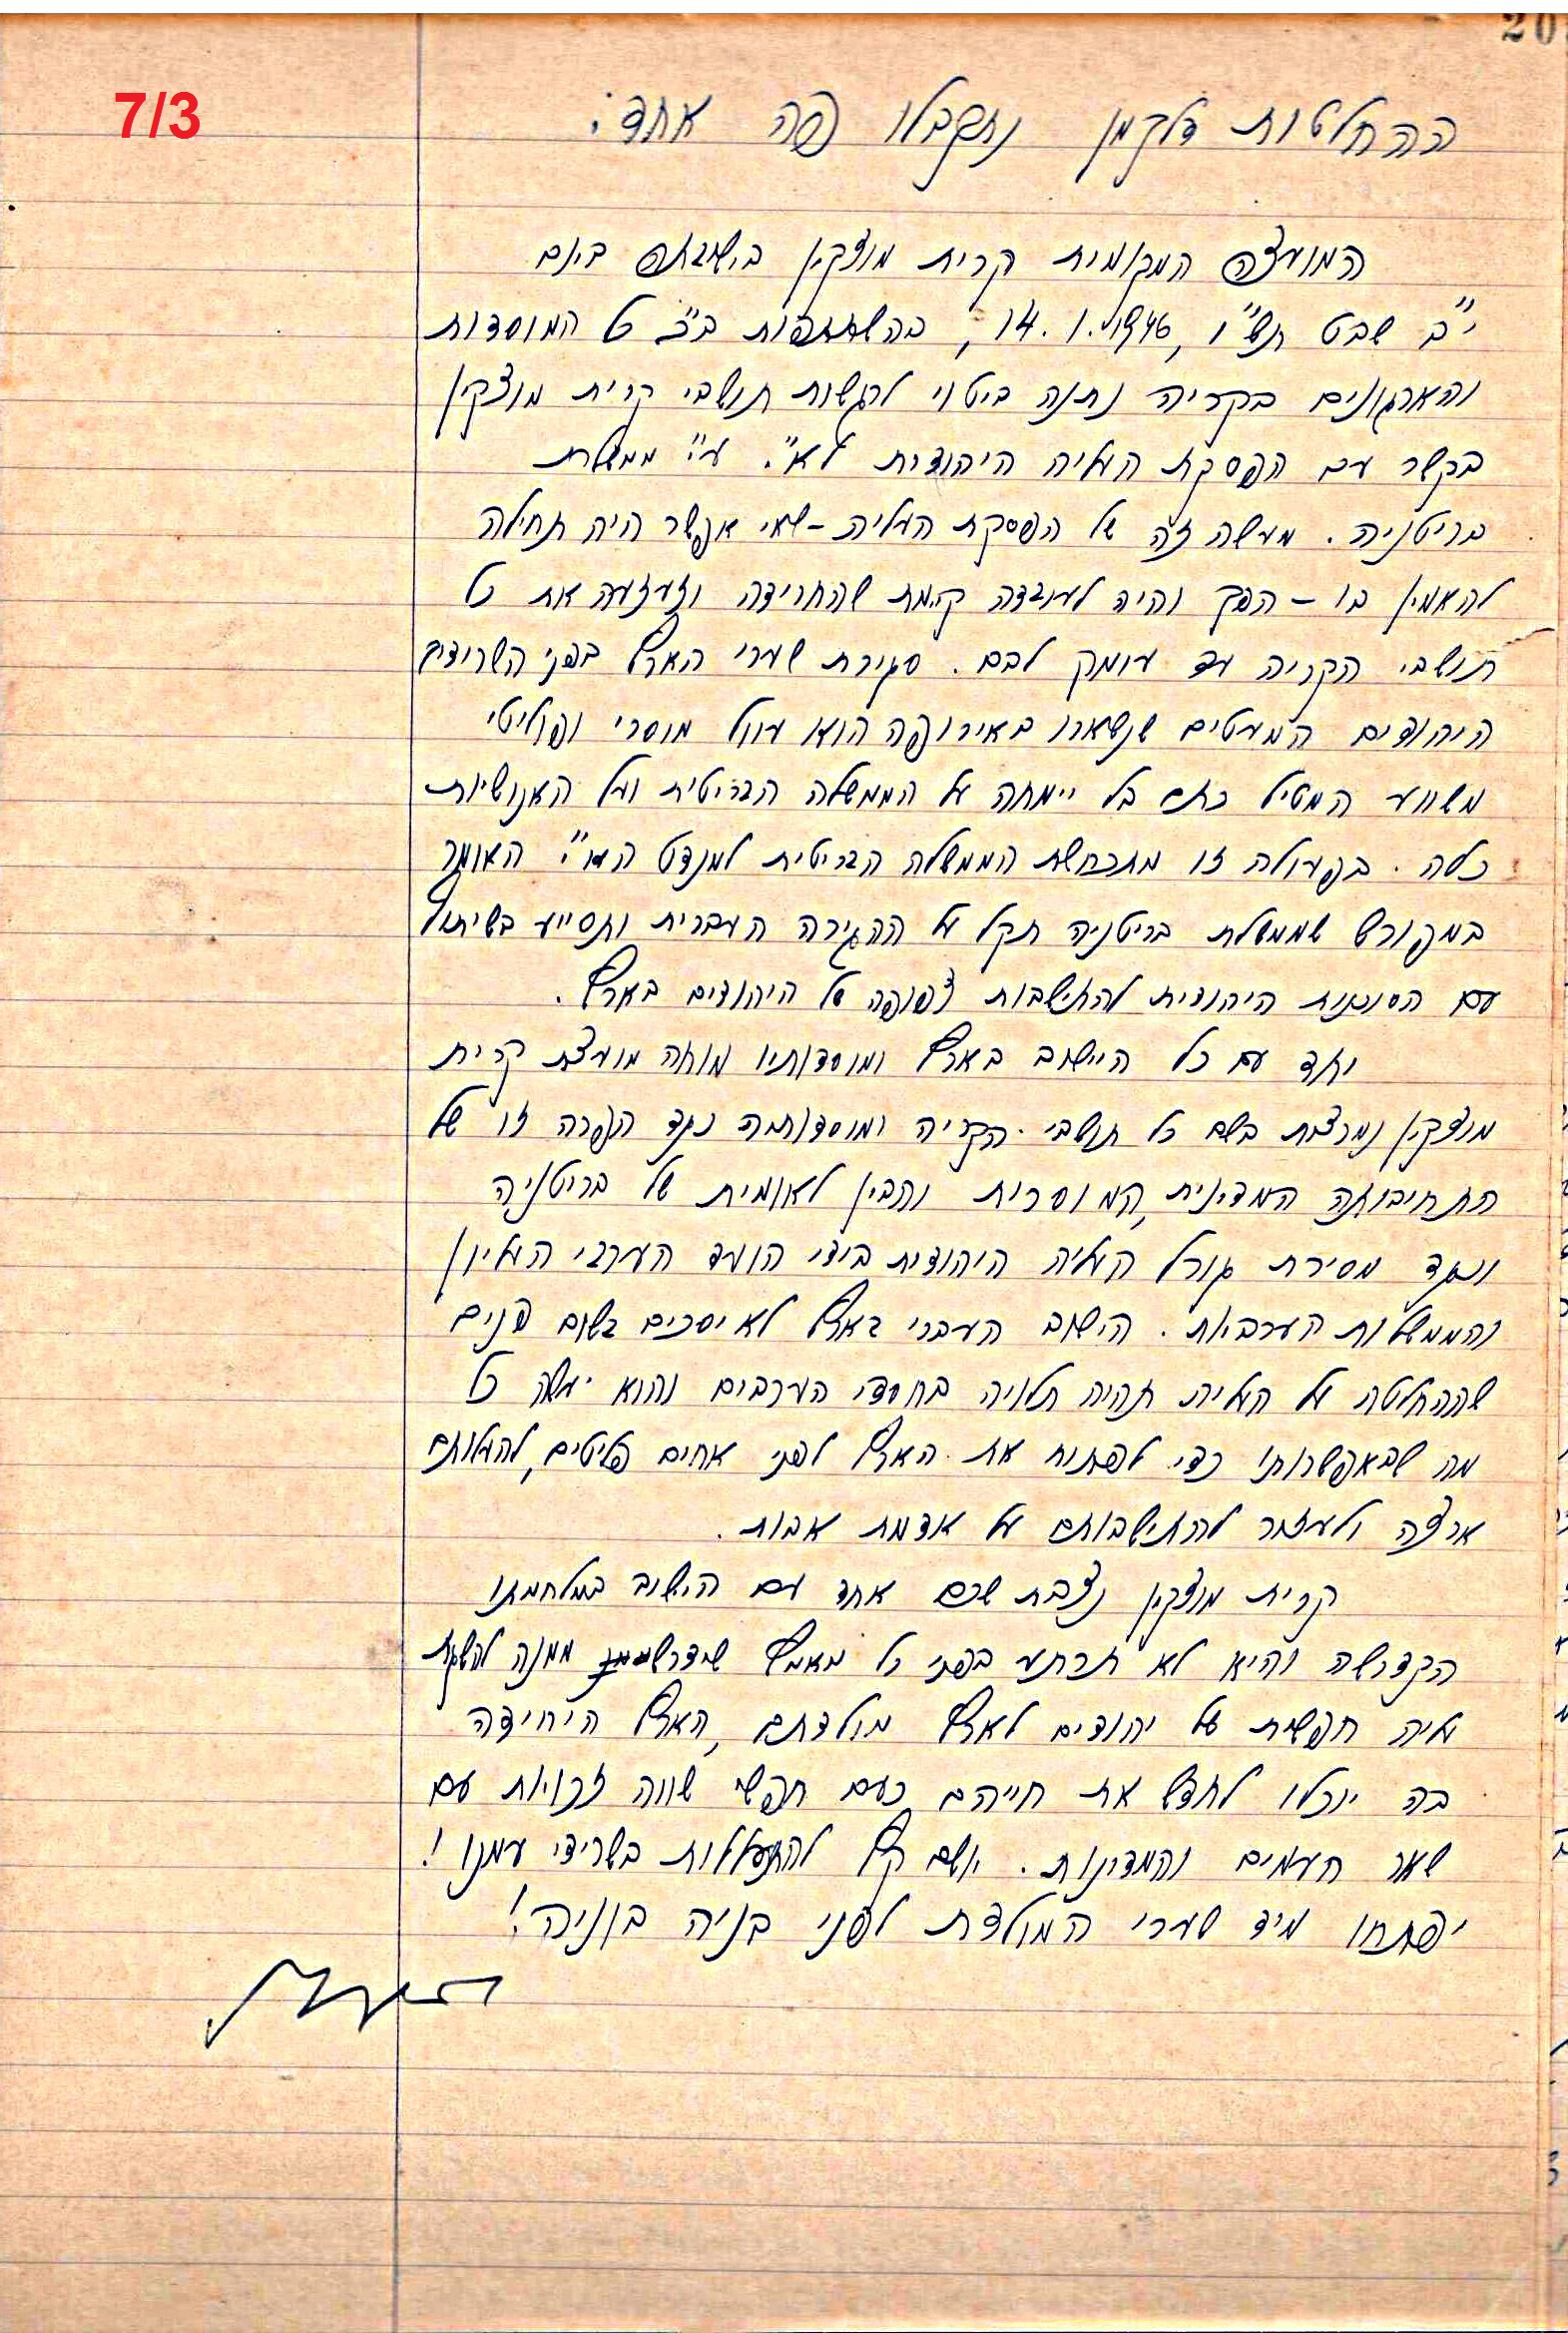 20
7/3
ההחלטות דלקמן נתקבלו פה אחד:
המועצה המקומית קרית מוצקין בישיבתה ביום
י"ב שבט תש"ו, 14.1.1946, בהשתתפות ב"כ כל המוסדות
והארגונים בקריה נתנה ביטוי לרגשות תושבי קרית מוצקין
בקשר עם הפסקת העליה היהודית לא"י ע"י ממשלת
בריטניה. מעשה זה של הפסקת העליה - שאי אפשר היה תחילה
להאמין בו - הפך והיה לעובדה קימת שהחרידה וזעזעה את כל
תושבי הקריה עד עומק לבם. סגירת שערי הארץ בפני השרידים
היהודים המעטים שנשארו באירופה הוא עוול מוסרי ופוליטי
משווע המטיל כתם בל יימחה על הממשלה הבריטית ועל האנושיות
כלה. בפעולה זו מתכחשת הממשלה הבריטית למנדט הא"י האומר
במפורש שממשלת בריטניה תקל על ההגירה העברית ותסייע בשיתוף
עם הסוכנות היהודית להתישבות צפופה של היהודים בארץ.
יחד עם כל היישוב בארץ ומוסדותיו מוחה מועצת קרית
מוצקין נמרצות בשם כל תושבי הקריה ומוסדותיה נגד הפרה זו של
התחיבותה המדינית, המוסרית והבין לאומית של בריטניה
ונגד מסירת גורל העליה היהודית בידי הועד הערבי העליון
והממשלות הערביות. הישוב העברי בארץ לא יסכים בשום פנים
שההחלטה על העליה תהיה תלויה בחסדי הערבים והוא יעשה כל
מה שבאפשרותו כדי לפתוח את הארץ לפני אחים פליטים, להעלותם
ארצה ולעזור להתישבותם על אדמת אבות.
קרית מוצקין נצבת שכם אחד עם הישוב במלחמתו
הקדושה והיא לא תרתע בפני כל מאמץ שידרש ממנה להשגת
עליה חפשית של יהודים לארץ מולדתם, הארץ היחידה
בה יוכלו לחדש את חייהם כעם חפשי שווה זכויות עם
שאר העמים והמדינות. יושם קץ להתעללות בשרידי עמנו!
יפתחו מיד שערי המולדת לפני בניה בוניה!